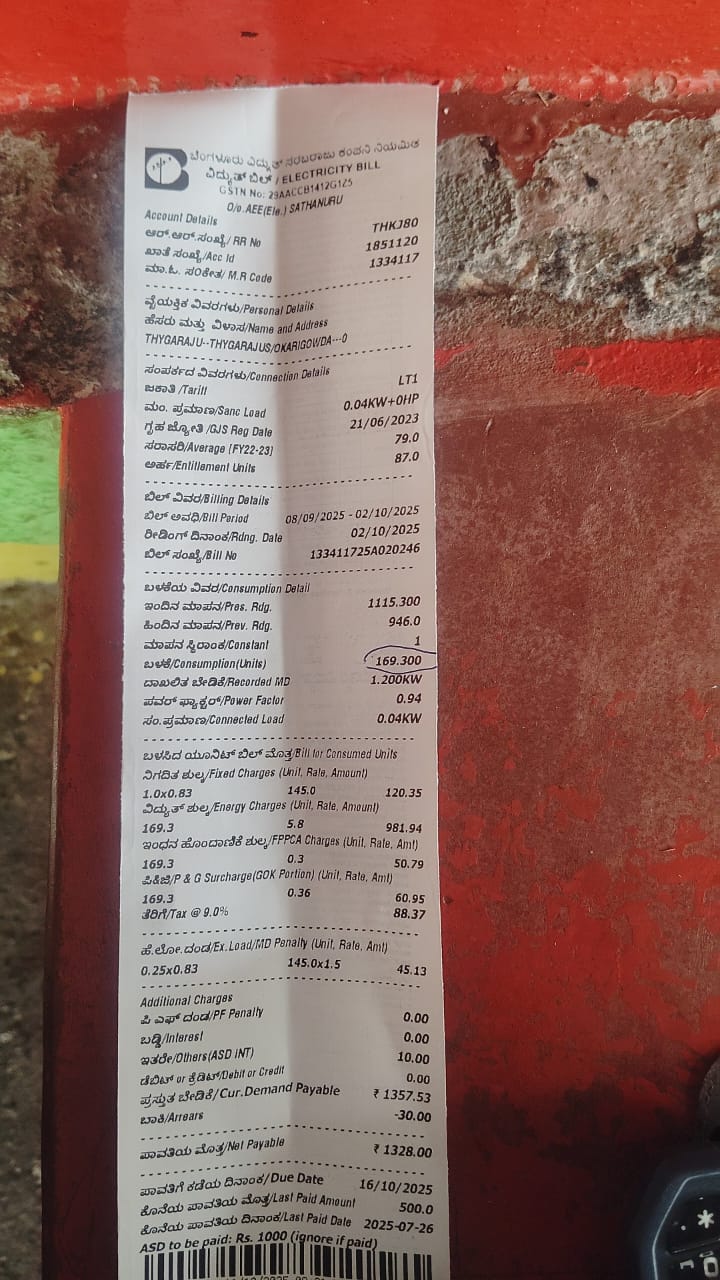 ಬೆಂಗಳೂರು ವಿದ್ಯುತ್ ಸರಬರಾಜು ಕಂಪನಿ ನಿಯಮಿತ
ವಿದ್ಯುತ್ ಬಿಲ್ / ELECTRICITY BILL
GSTN No: 29AACCB1412G1Z5
O/o.AEE(Ele.) SATHANURU
Account Details
ಆರ್.ಆರ್.ಸಂಖ್ಯೆ/ RR No THKJ80
ಖಾತೆ ಸಂಖ್ಯೆ/Acc Id 1851120
ಮಾ.ಓ. ಸಂಕೇತ/ M.R Code 1334117
ವೈಯಕ್ತಿಕ ವಿವರಗಳು/Personal Details
ಹೆಸರು ಮತ್ತು ವಿಳಾಸ/Name and Address
THYGARAJU--THYGARAJUS/OKARIGOWDA---0
ಸಂಪರ್ಕದ ವಿವರಗಳು/Connection Details
ಜಕಾತಿ /Tariff LT1
ಮಂ. ಪ್ರಮಾಣ/Sanc Load 0.04KW+0HP
ಗೃಹ ಜ್ಯೋತಿ /GJS Reg Date 21/06/2023
ಸರಾಸರಿ/Average [FY22-23] 79.0
ಅರ್ಹ/Entitlement Units 87.0
ಬಿಲ್ ವಿವರ/Billing Details
ಬಿಲ್ ಅವಧಿ/Bill Period 08/09/2025 - 02/10/2025
ರೀಡಿಂಗ್ ದಿನಾಂಕ/Rdng. Date 02/10/2025
ಬಿಲ್ ಸಂಖ್ಯೆ/Bill No 133411725A020246
ಬಳಕೆಯ ವಿವರ/Consumption Detail
ಇಂದಿನ ಮಾಪನ/Pres. Rdg. 1115.300
ಹಿಂದಿನ ಮಾಪನ/Prev. Rdg. 946.0
ಮಾಪನ ಸ್ಥಿರಾಂಕ/Constant 1
ಬಳಕೆ/Consumption(Units) 169.300
ದಾಖಲಿತ ಬೇಡಿಕೆ/Recorded MD 1.200KW
ಪವರ್ ಫ್ಯಾಕ್ಟರ್/Power Factor 0.94
ಸಂ.ಪ್ರಮಾಣ/Connected Load 0.04KW
ಬಳಸಿದ ಯೂನಿಟ್ ಬಿಲ್ ಮೊತ್ತ/Bill for Consumed Units
ನಿಗದಿತ ಶುಲ್ಕ/Fixed Charges (Unit, Rate, Amount)
1.0x0.83 145.0 120.35
ವಿದ್ಯುತ್ ಶುಲ್ಕ/Energy Charges (Unit, Rate, Amount)
169.3 5.8 981.94
ಇಂಧನ ಹೊಂದಾಣಿಕೆ ಶುಲ್ಕ/FPPCA Charges (Unit, Rate, Amt)
169.3 0.3 50.79
ಪಿ&ಜಿ/P & G Surcharge(GOK Portion) (Unit, Rate, Amt)
169.3 0.36 60.95
ತೆರಿಗೆ/Tax @ 9.0% 88.37
ಹೆ.ಲೋ.ದಂಡ/Ex.Load/MD Penalty (Unit, Rate, Amt)
0.25x0.83 145.0x1.5 45.13
Additional Charges
ಪಿ ಎಫ್ ದಂಡ/PF Penalty 0.00
ಬಡ್ಡಿ/Interest 0.00
ಇತರೇ/Others(ASD INT) 10.00
ಡೆಬಿಟ್ or ಕ್ರೆಡಿಟ್/Debit or Credit 0.00
ಪ್ರಸ್ತುತ ಬೇಡಿಕೆ/Cur.Demand Payable ₹ 1357.53
ಬಾಕಿ/Arrears -30.00
ಪಾವತಿಯ ಮೊತ್ತ/Net Payable ₹ 1328.00
ಪಾವತಿಗೆ ಕಡೆಯ ದಿನಾಂಕ/Due Date 16/10/2025
ಕೊನೆಯ ಪಾವತಿಯ ಮೊತ್ತ/Last Paid Amount 500.0
ಕೊನೆಯ ಪಾವತಿಯ ದಿನಾಂಕ/Last Paid Date 2025-07-26
ASD to be paid: Rs. 1000 (ignore if paid)